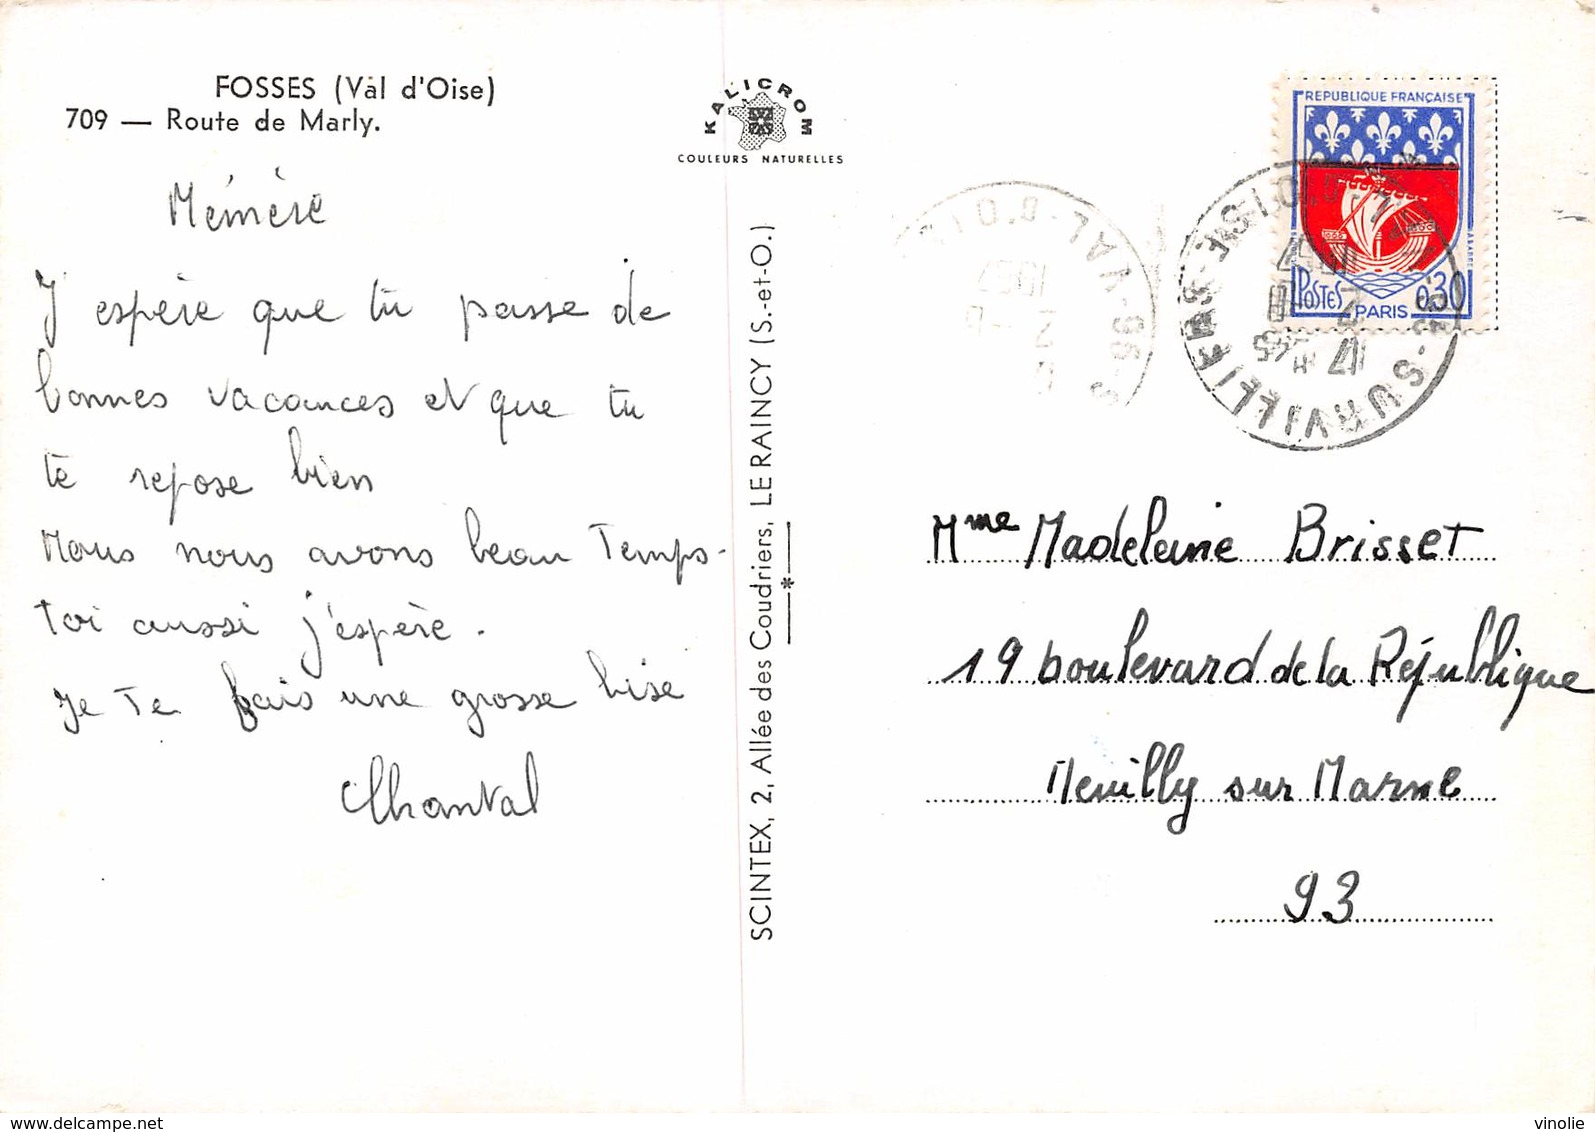 FOSSES (Val d'Oise)
709 — Route de Marly.
Mémère
J'espère que tu passe de
bonnes vacances et que tu
te repose bien
Nous nous avons beau Temps.
toi aussi j'espère.
Je Te fais une grosse bise
Chantal
KALICROM
COULEURS NATURELLES
SCINTEX, 2, Allée des Coudriers, LE RAINCY (S.-et-O.)
REPUBLIQUE FRANÇAISE
POSTES
0,30
PARIS
95-SURVILLIERS
VAL-D'OISE
17 H 45
1967
95-S
VAL-D'OI
1967
Mme Madeleine Brisset
19 boulevard de la République
Neuilly sur Marne
93
vinolie - delcampe.net